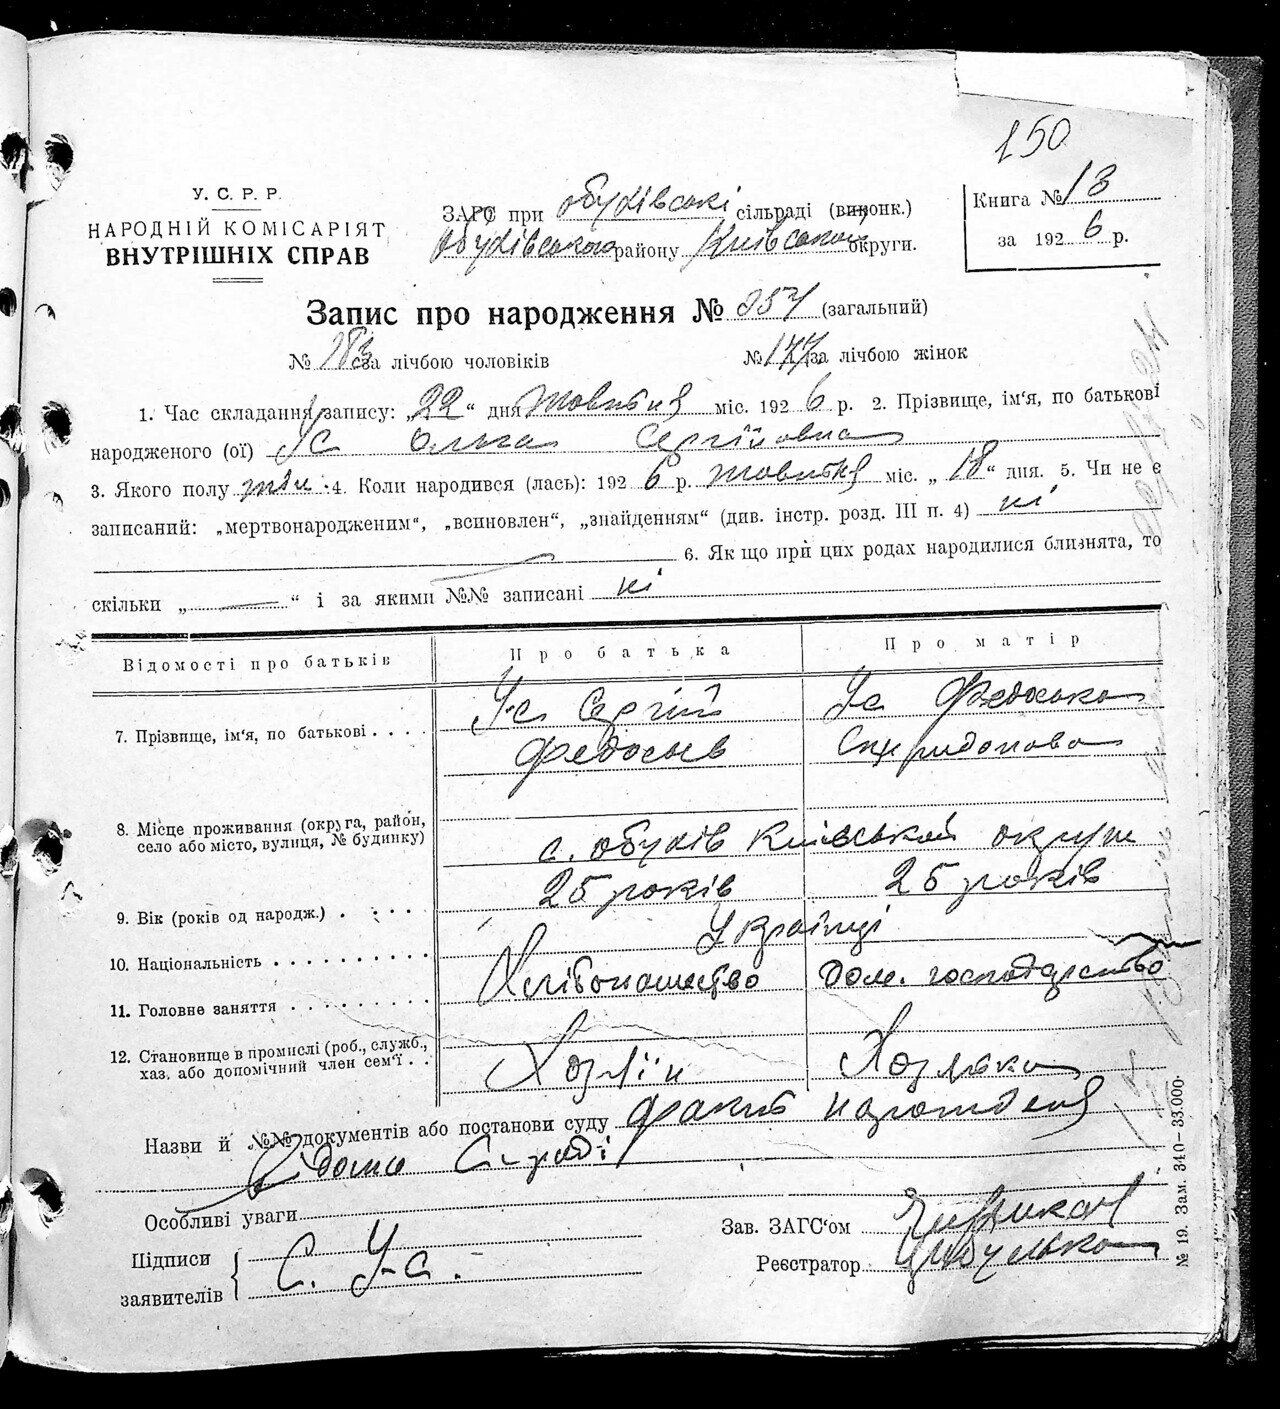 150
У. С. Р. Р.
НАРОДНІЙ КОМІСАРІЯТ
ВНУТРІШНІХ СПРАВ
ЗАГС при Обухівські сільраді (виконк.)
Обухівського району Київської округи.
Книга № 13
за 1926 р.
Запис про народження № 357 (загальний)
№ 183 за лічбою чоловіків № 177 за лічбою жінок
1. Час складання запису: 22 “ дня Жовтня міс. 1926 р. 2. Прізвище, ім'я, по батькові
народженого (ої) Ус Ольга Сергійовна
3. Якого полу жін. 4. Коли народився (лась): 1926 р. Жовтня міс. „ 18 “ дня. 5. Чи не є
записаний: „мертвонародженим“, „всиновлен“, „знайденням“ (див. інстр. розд. III п. 4) ні
6. Як що при цих родах народилися близнята, то
скільки „ — “ і за якими №№ записані ні
Відомості про батьків Про батька Про матір
7. Прізвище, ім'я, по батькові . . . . Ус Сергій Ус Федоська
Федосьів Спиридонова
8. Місце проживання (округа, район,
село або місто, вулиця, № будинку) с. Обухів Київської округи
9. Вік (років од народж.) . . . . . 25 років 25 років
10. Національність . . . . . . . . . . Українці
11. Головне заняття . . . . . . . . Хлібопашество Дом. господарство
12. Становище в промислі (роб., служб.,
хаз. або допомічний член сем'ї . . Хозяїн Хозяйка
Назви й №№ документів або постанови суду факт народження
відомо С-раді
Особливі уваги
Підписи
заявителів С. Ус.
Зав. ЗАГС'ом
Реєстратор Цибулька
№ 19. Зам. 340—33.000.